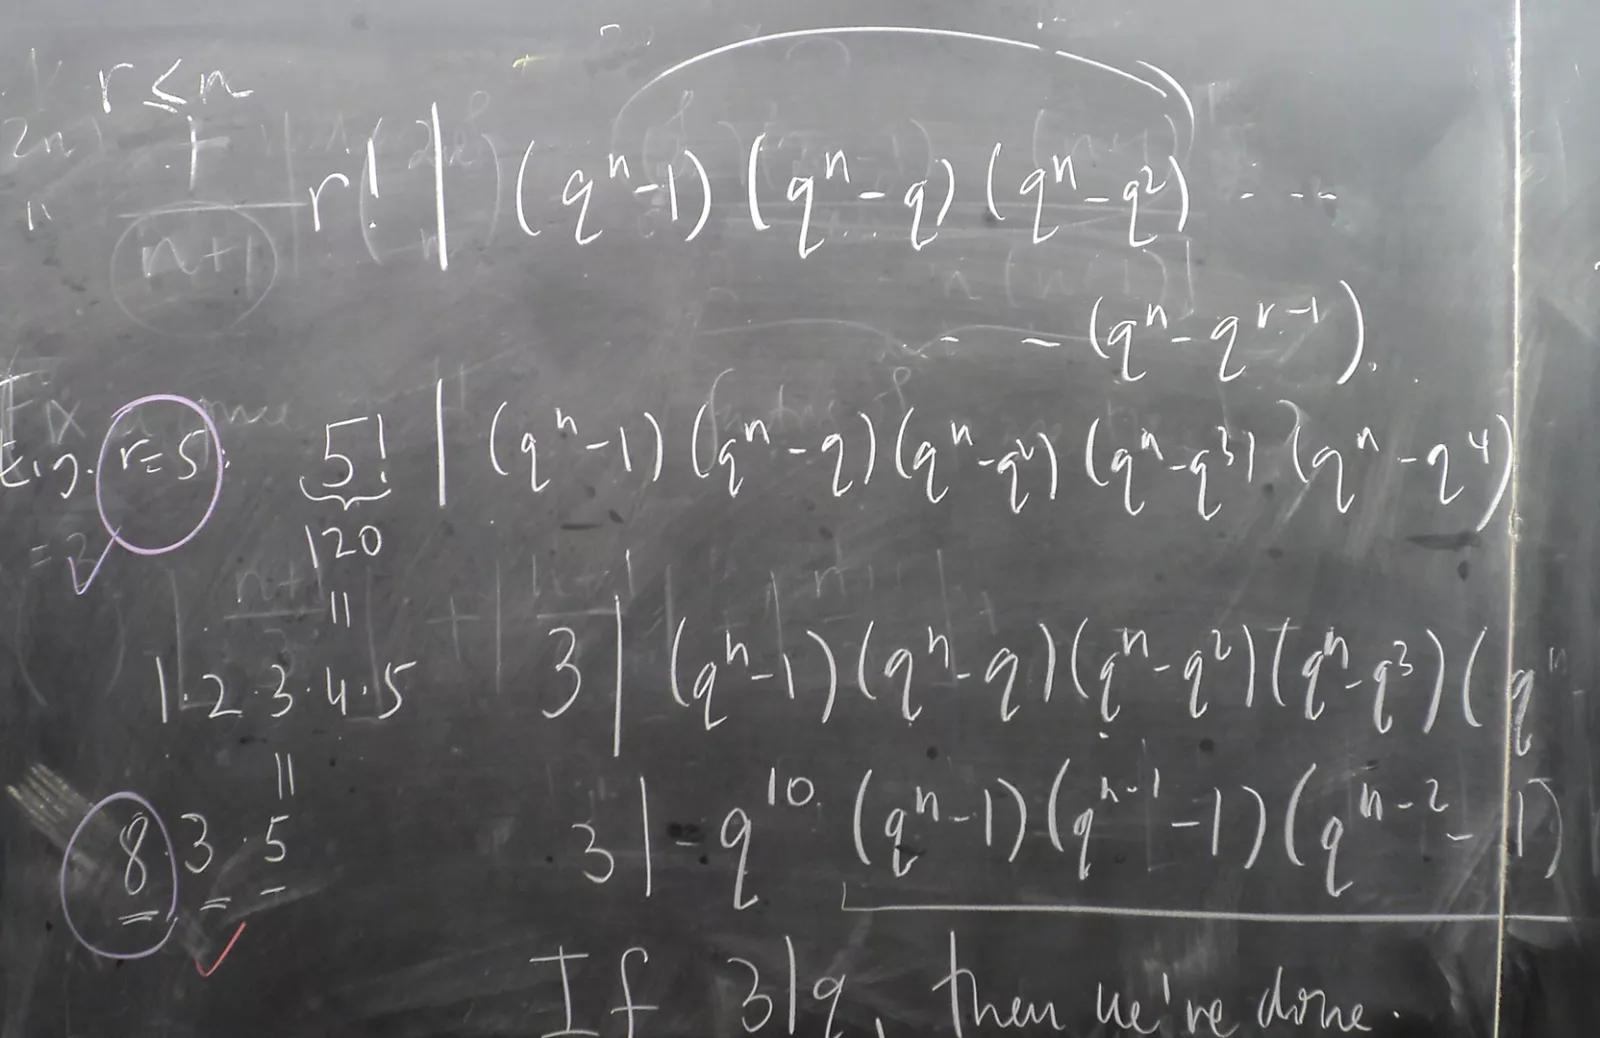 r ≤ n
r! | (qⁿ-1) (qⁿ-q) (qⁿ-q²) ---
- - (qⁿ-q^{r-1}).
E.g. r=5: 5! | (qⁿ-1) (qⁿ-q) (qⁿ-q²) (qⁿ-q³) (qⁿ-q⁴)
120
=
1·2·3·4·5
3 | (qⁿ-1) (qⁿ-q) (qⁿ-q²) (qⁿ-q³) (qⁿ-
=
8·3·5
3 | q¹⁰ (qⁿ-1) (q^{n-1}-1) (q^{n-2}-1)
If 3|q, then we've done.